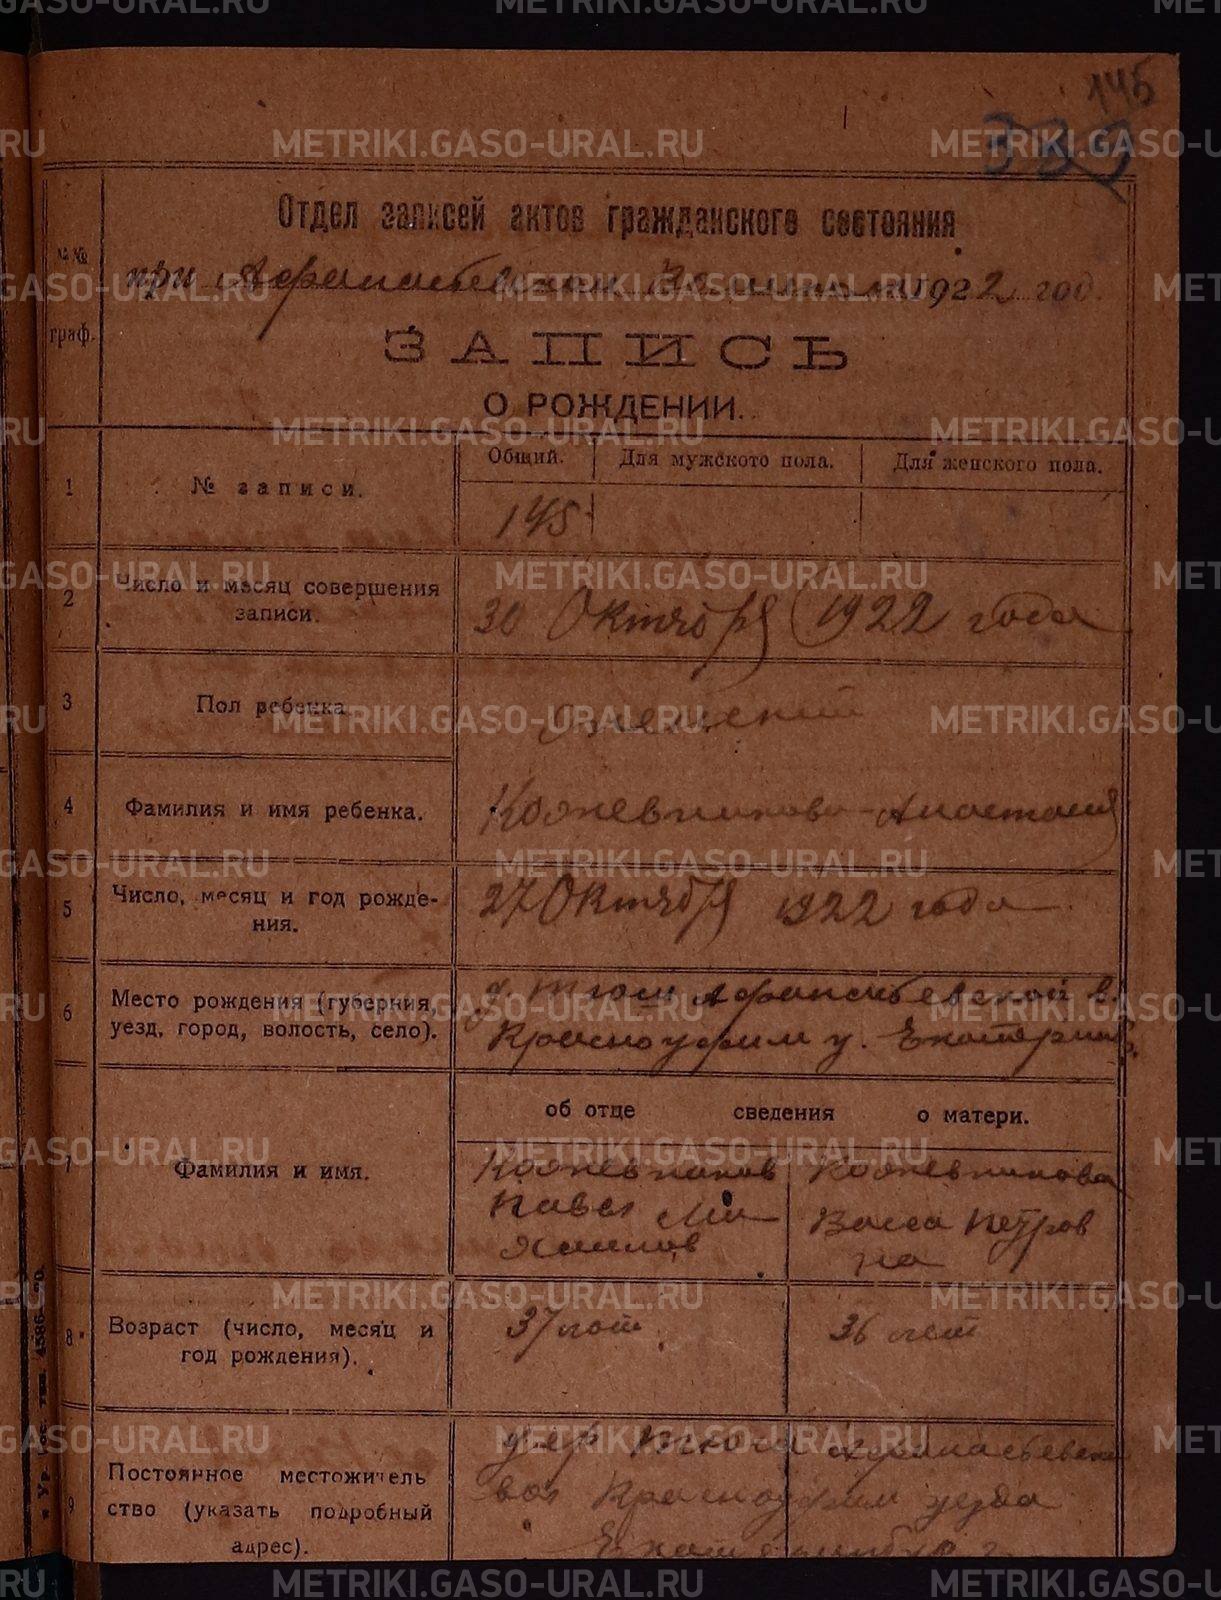 145
332
Отдел записей актов гражданского состояния
№№ граф.
при Афанасьевском 1922 год.
ЗАПИСЬ
О РОЖДЕНИИ.
1 № записи. Общий. Для мужского пола. Для женского пола.
145
2 Число и месяц совершения записи. 30 Октября 1922 года
3 Пол ребенка Женский
4 Фамилия и имя ребенка. Кожевникова Анастасия
5 Число, месяц и год рожде-
ния. 27 Октября 1922 года
6 Место рождения (губерния, уезд, город, волость, село). д. Тюш Афанасьевской в.
Красноуфим у. Екатеринб.
об отце сведения о матери.
7 Фамилия и имя. Кожевников Павел Ми
хаилов
Кожевникова
Васса Петров
на
8 Возраст (число, месяц и год рождения). 37 лет 36 лет
9 Постоянное местожитель
ство (указать подробный адрес). Афанасьевской
вол Красноуфим уезда
METRIKI.GASO-URAL.RU